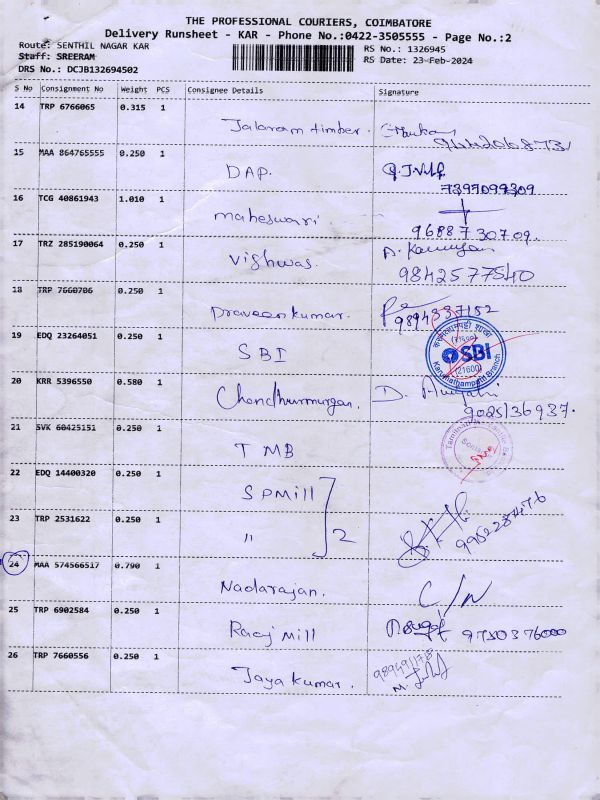 THE PROFESSIONAL COURIERS, COIMBATORE
Delivery Runsheet - KAR - Phone No.:0422-3505555 - Page No.:2
Route: SENTHIL NAGAR KAR RS No.: 1326945
Staff: SREERAM RS Date: 23-Feb-2024
DRS No.: DCJB132694502
S No Consignment No Weight PCS Consignee Details Signature
14 TRP 6766065 0.315 1
Jalaram timber.
9442068731
15 MAA 864765555 0.250 1
DAP.
7397099309
16 TCG 40861943 1.010 1
maheswari.
96887 30709.
17 TRZ 285190064 0.250 1
Vishwas.
9842577540
18 TRP 7660706 0.250 1
Praveenkumar.
9894337152
19 EDQ 23264051 0.250 1
SBI
SBI
(21600)
20 KRR 5396550 0.580 1
Chandhurmurgan.
9025136937.
21 SVK 60425151 0.250 1
TMB
22 EDQ 14400320 0.250 1
SPMill
23 TRP 2531622 0.250 1
" 2
9952287476
24 MAA 574566517 0.790 1
Nadarajan. C/N
25 TRP 6902584 0.250 1
Raaj Mill 9750376000
26 TRP 7660556 0.250 1
Jaya kumar.